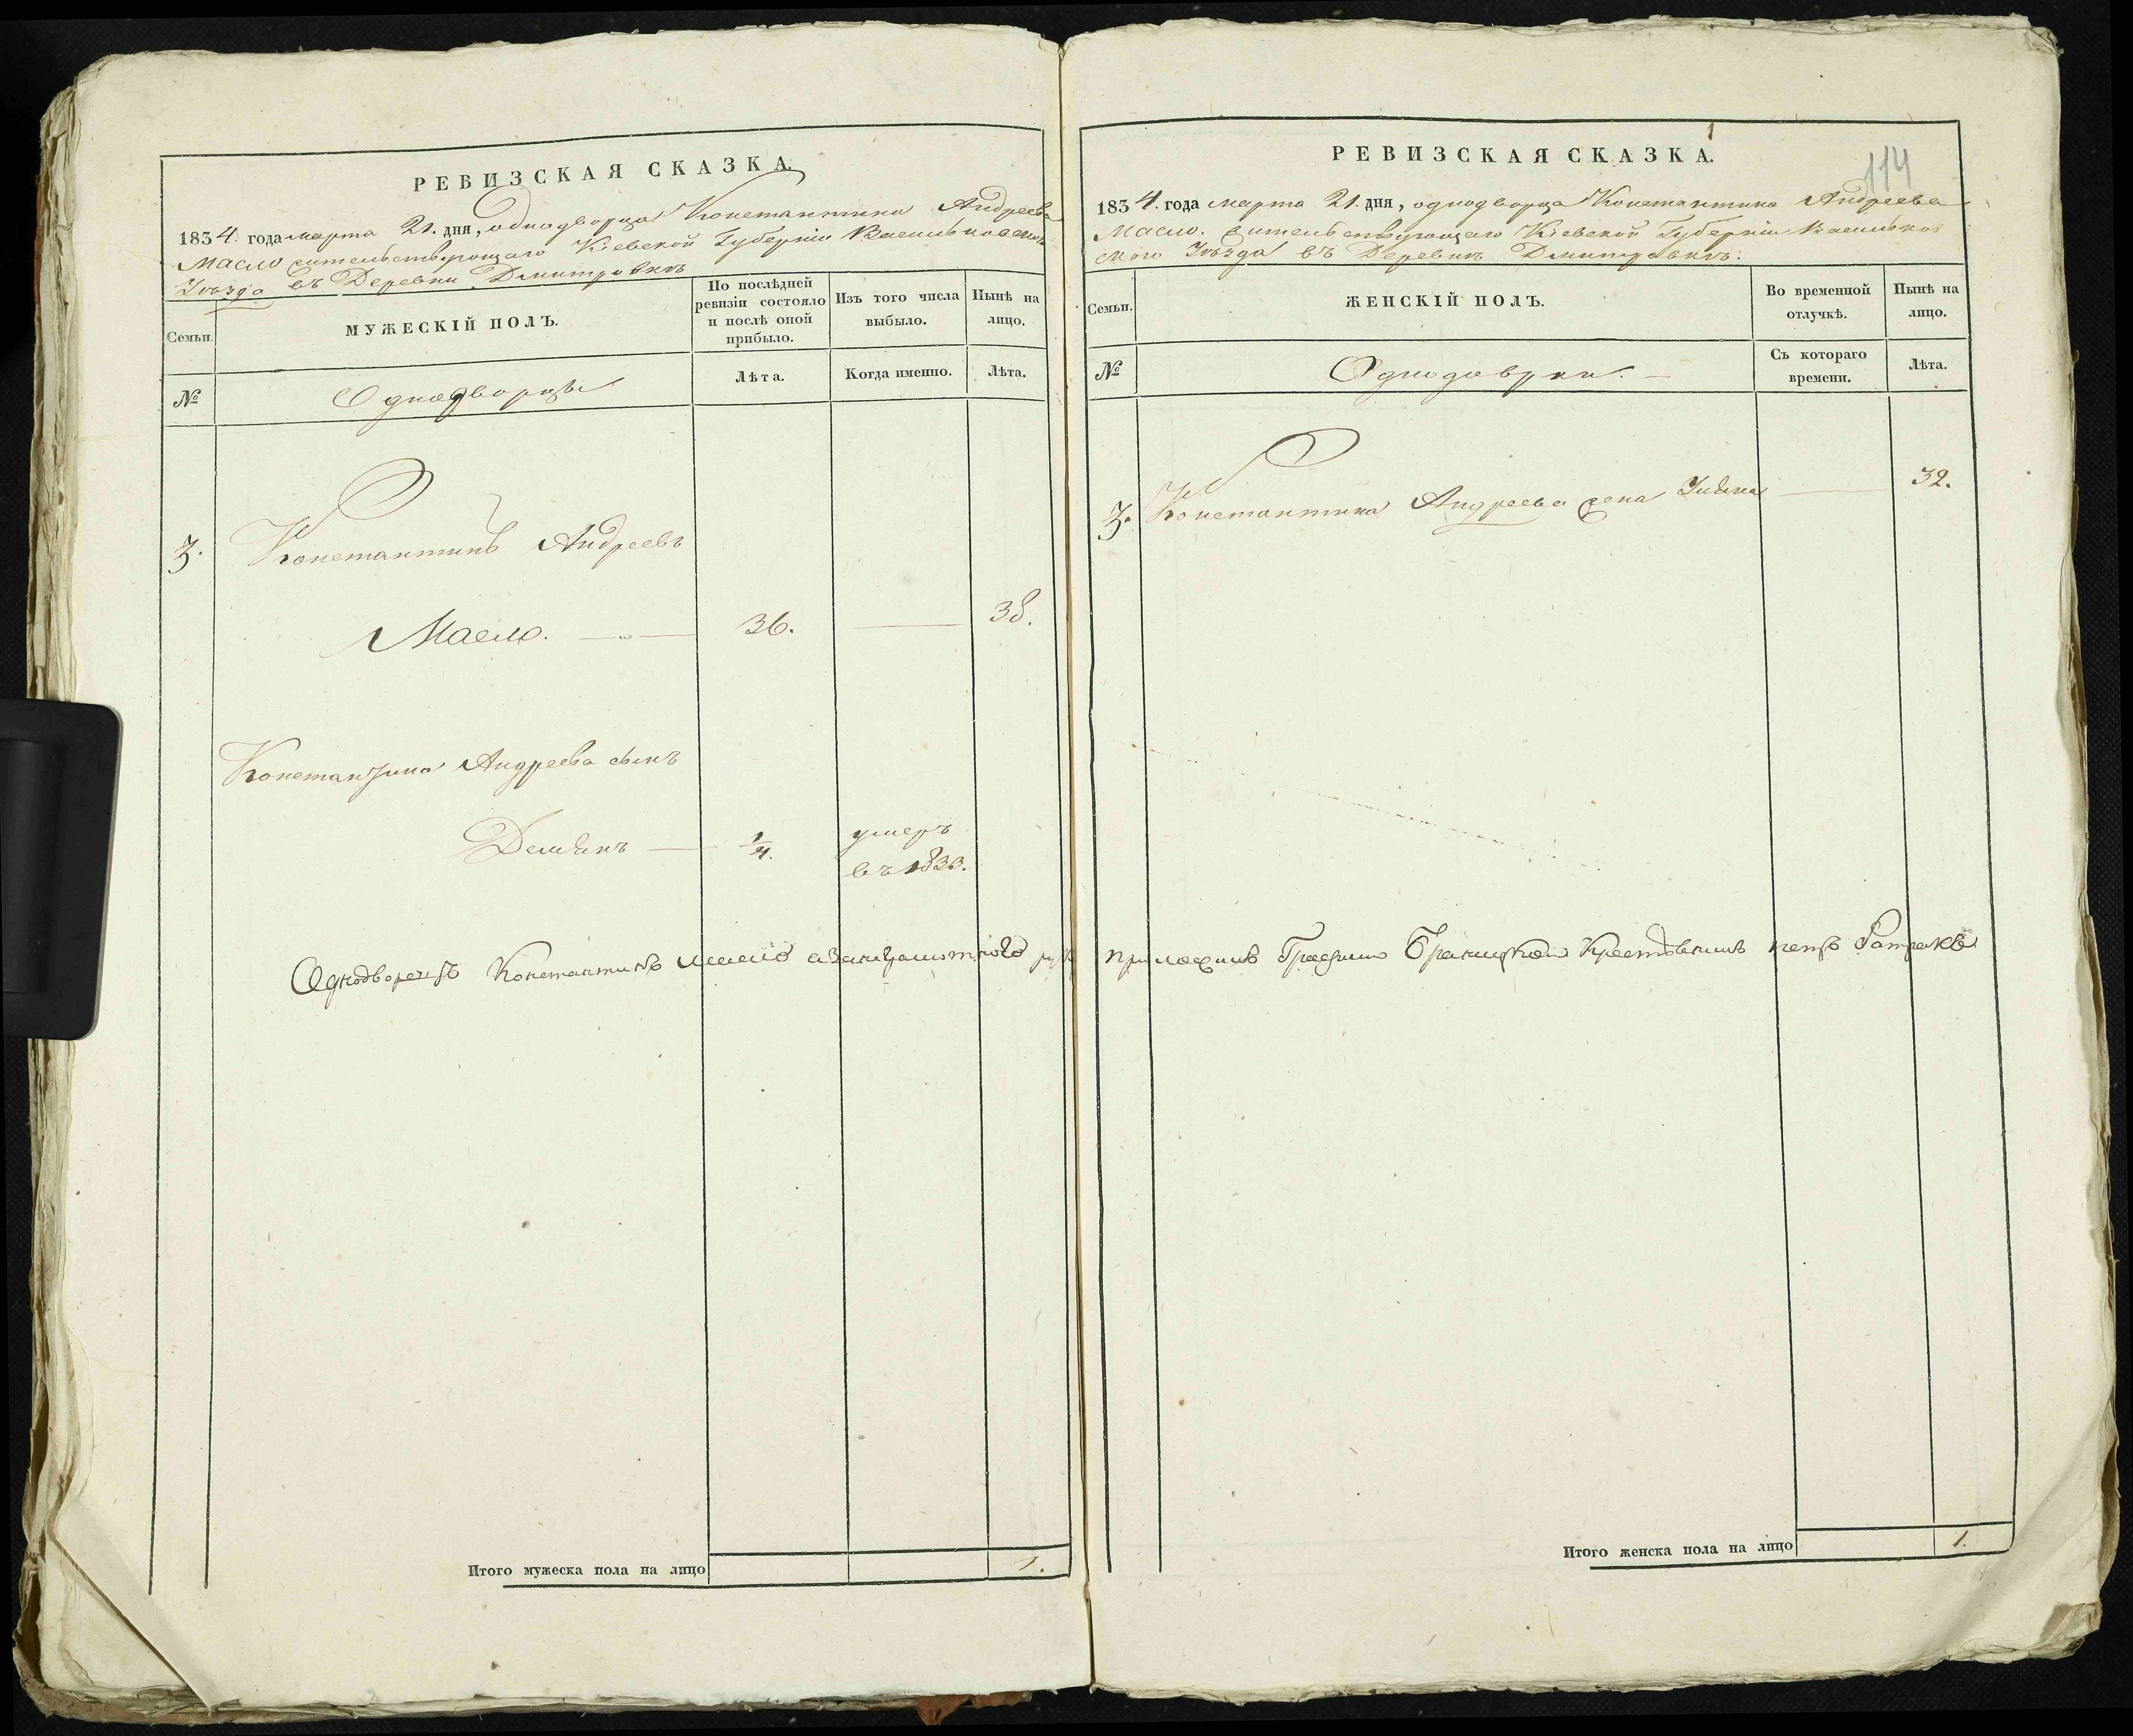 РЕВИЗСКАЯ СКАЗКА.
1834. года марта 21. дня, однодворца Константина Андреева
Масло жительствующаго Кіевской Губерніи Васильковскаго
Уѣзда въ Деревни Дмитровкѣ
Семьи.
МУЖЕСКІЙ ПОЛЪ.
По послѣдней ревизіи состояло и послѣ оной прибыло.
Изъ того числа выбыло.
Нынѣ на лицо.
№
Однодворцы
Лѣта.
Когда именно.
Лѣта.
3. Константинъ Андреевъ
Масло. 36. 38.
Константина Андреева сынъ
Демьянъ 1/4. умеръ
въ 1833.
Однодворецъ Константинъ
Итого мужеска пола на лицо 1.
1
114
РЕВИЗСКАЯ СКАЗКА.
1834. года марта 21. дня, однодворца Константина Андреева
Масло. жительствующаго Кіевской Губерніи Васильков
ского Уѣзда въ Деревнѣ Дмитровкѣ.
Семьи.
ЖЕНСКІЙ ПОЛЪ.
Во временной отлучкѣ.
Нынѣ на лицо.
№
Съ котораго времени.
Лѣта.
3. Константина Андреева жена 32.
приложилъ
Итого женска пола на лицо 1.